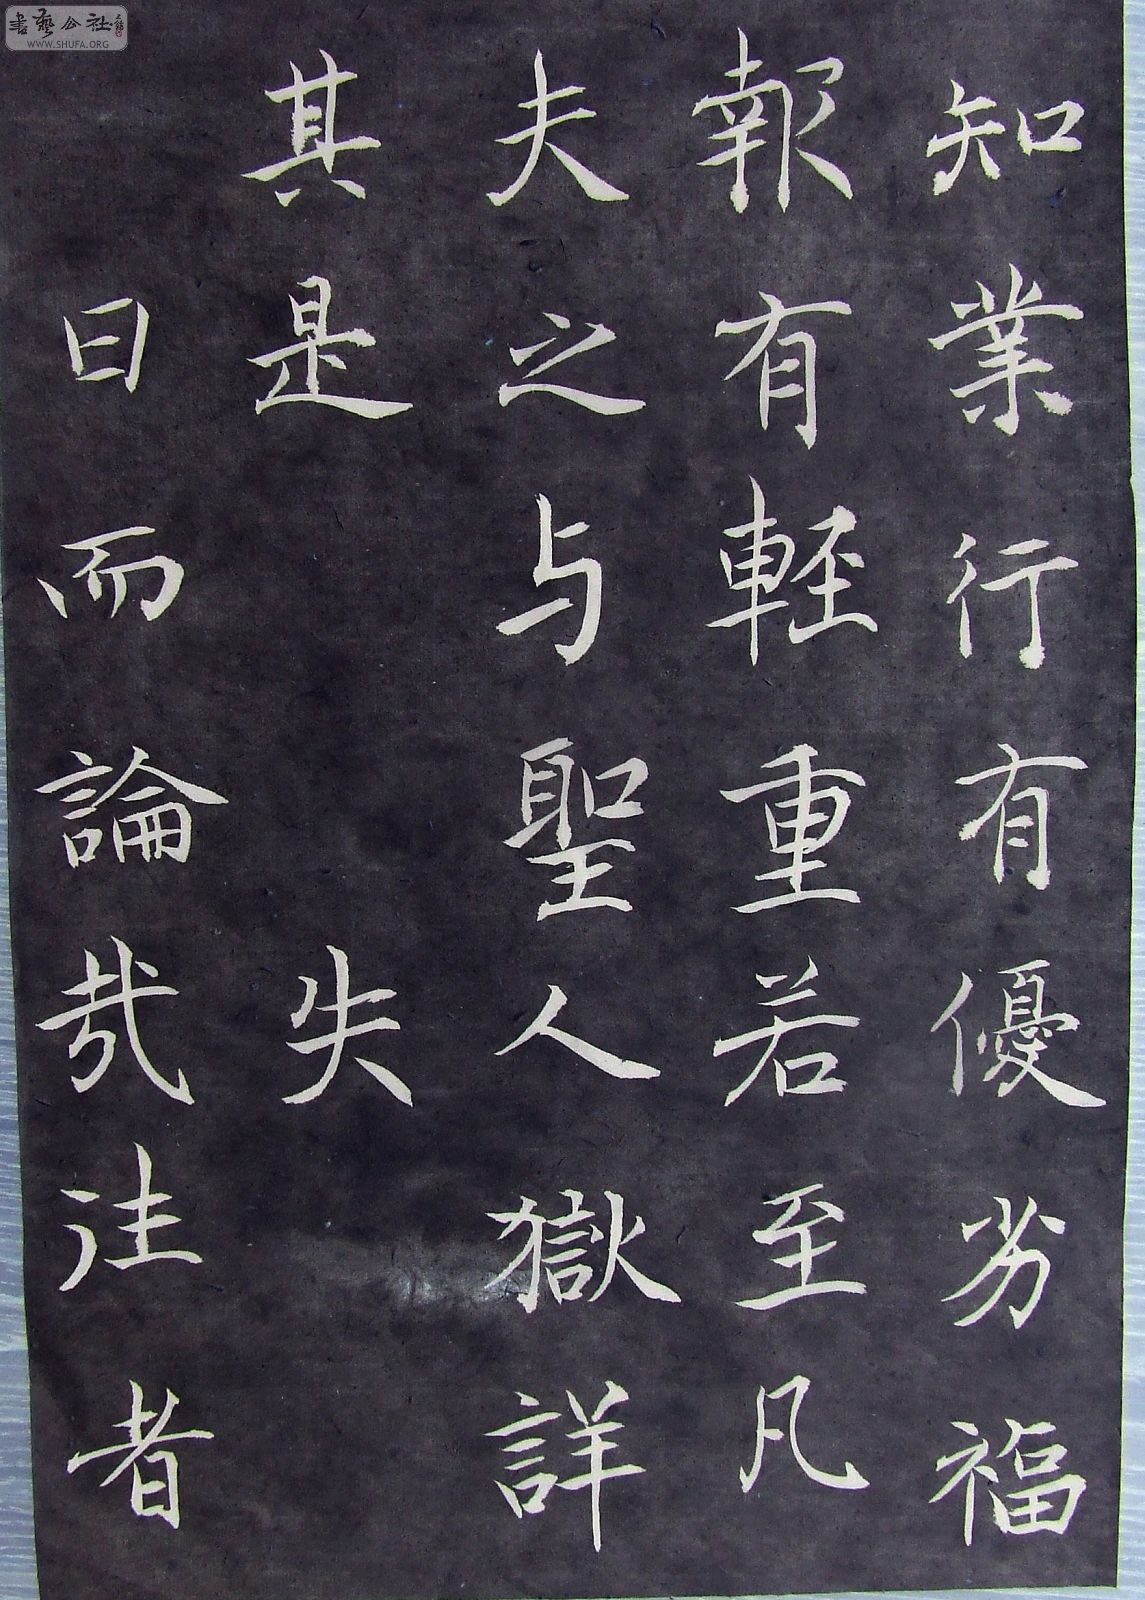 知業行有優劣福
報有輕重若至凡
夫之与聖人獄詳
其是失
曰而論哉注者
書藝公社
WWW.SHUFA.ORG